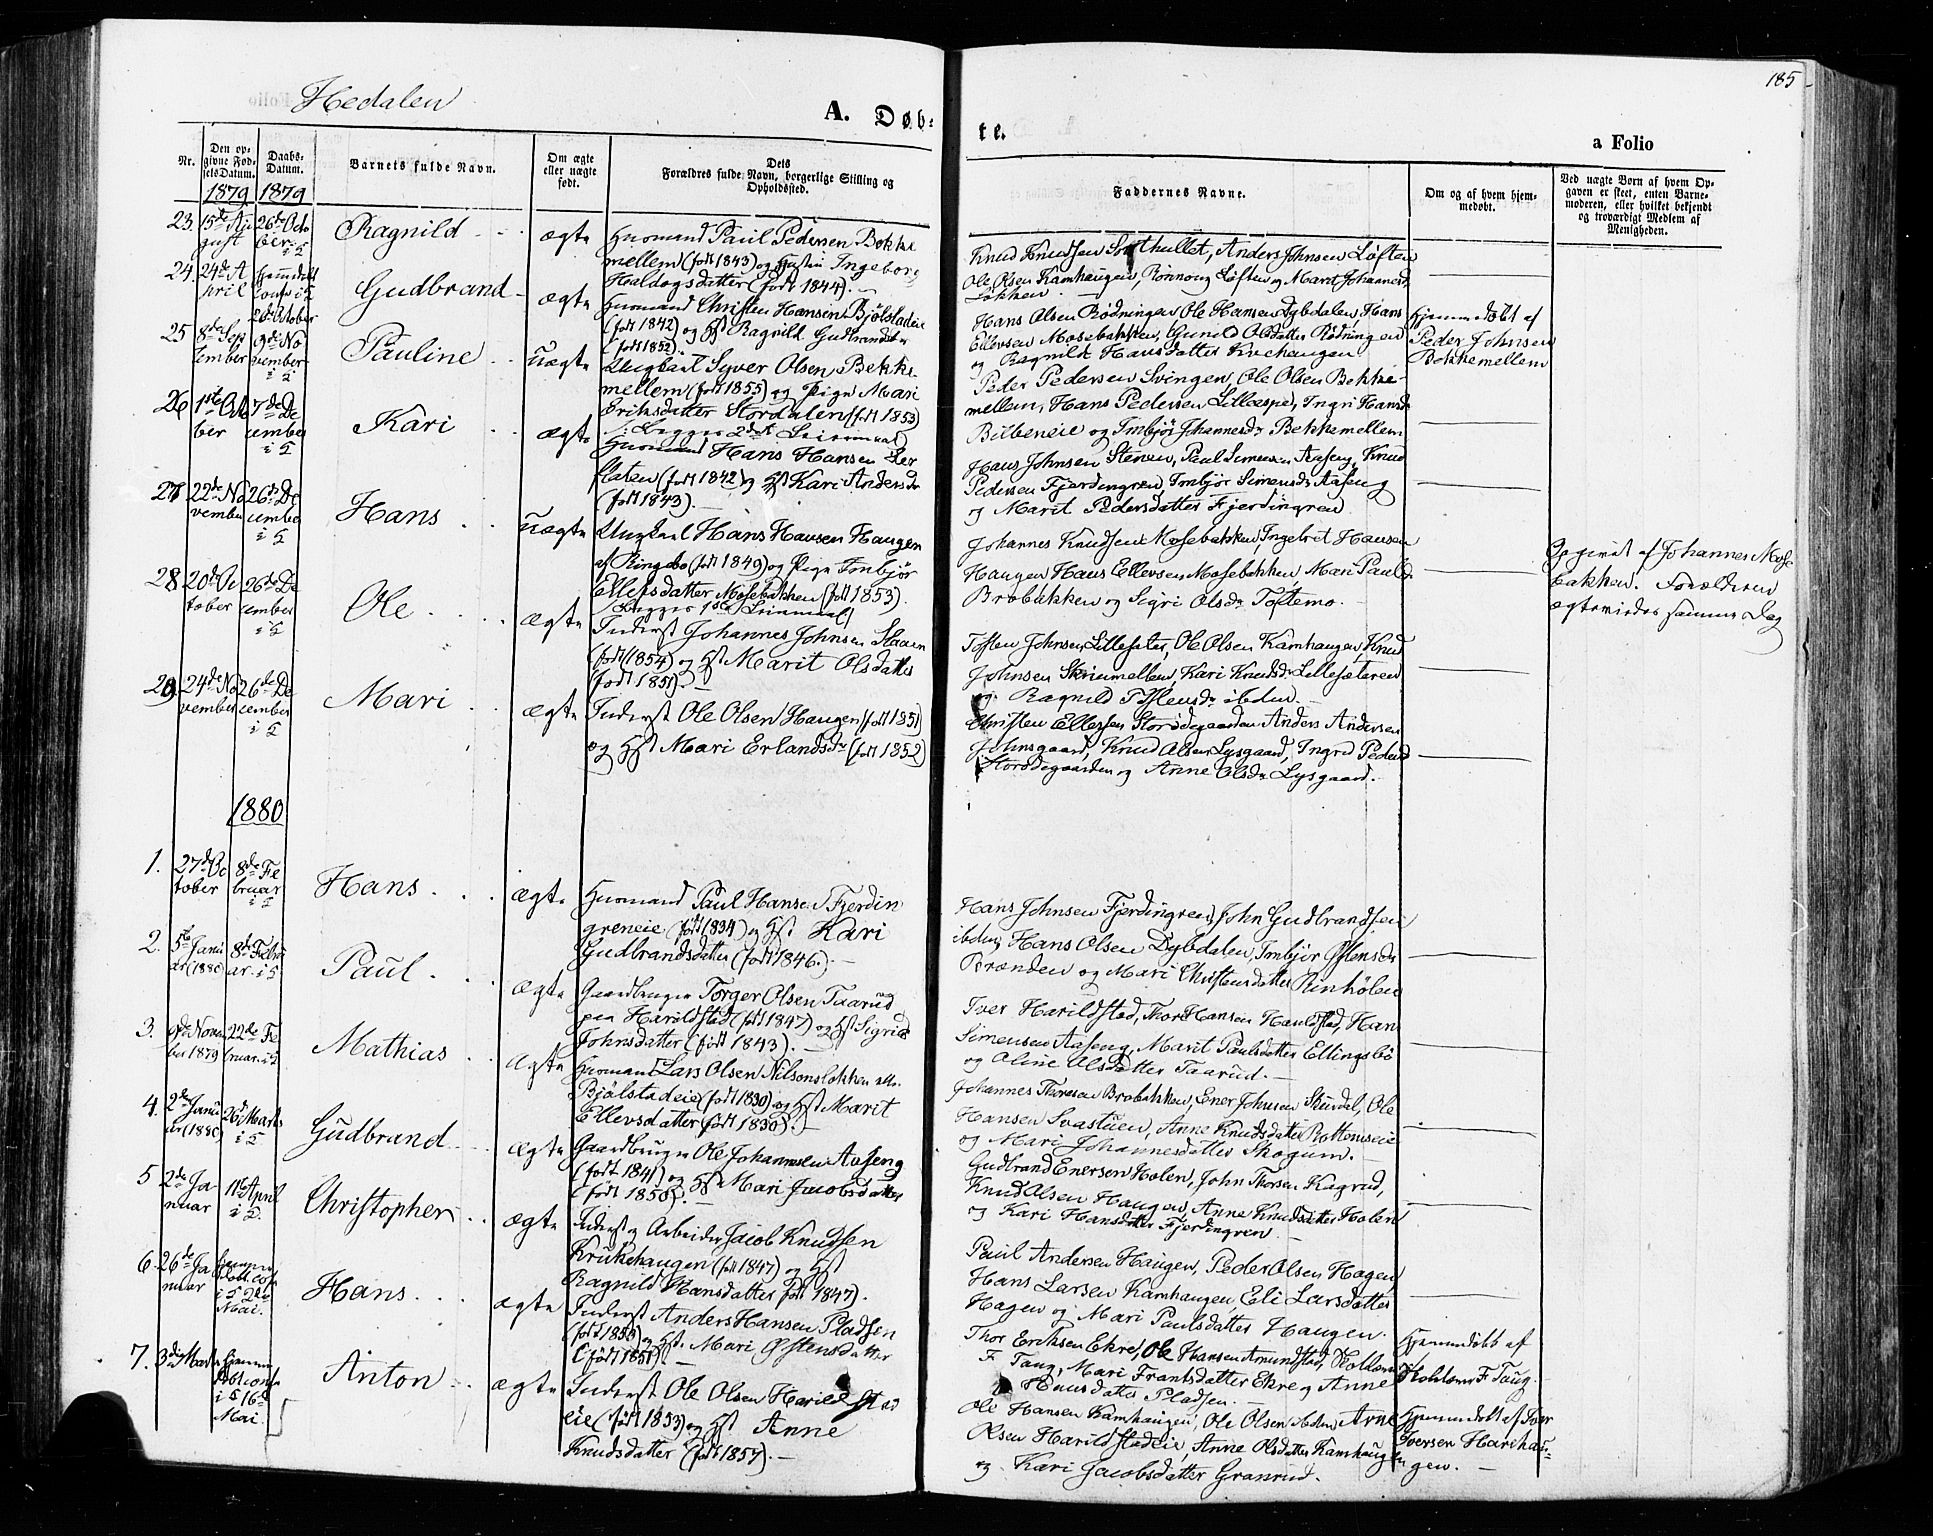 185
Hedalen
A. Døb-
te.
a Folio
Nr.
Den op-
givne Fød-
selsDatum.
Daabs-
Datum.
Barnets fulde Navn.
Om ægte
eller uægte
født.
Dets
Forældres fulde Navn, borgerlige Stilling og
Opholdssted.
Faddernes Navne.
Om og af hvem hjem-
medøbt.
Ved uægte Børn af hvem Op-
gaven er skeet, enten Barne-
moderen, eller hvilket bekjendt
og troværdigt Medlem af
Menigheden.
1879 1879
23. 15de Au
gust
26de Octo
ber
i S
Ragnild
ægte
Husmand Paul Pedersen Bekke
mellem (født 1843) og Hustru Ingeborg
Haldogsdatter (født 1844).
Knud Knudsen Svarthullet, Anders Johnsen Løften
Ole Olsen Kamhaugen, Rønnoug Løften og Marit Johannesd.
Løkken.
24. 24de A
pril
Hjemmedøbt
Conf. i S
26 October
Gudbrand
ægte
Husmand Christen Hansen Bjølstadeie
(født 1842) og Hst Ragnild Gudbrandsdtr
(født 1852).
Hans Olsen Rødningen, Ole Hansen Dybdalen, Hans
Ellevsen Mosebakken, Gunild Olsdatter Rødningen
og Ragnild Hansdatter Krehaugen
Hjemmedøbt af
Peder Johnsen
Bekkemellem
25 8de Sep
tember
9de No
vember
i S
Pauline
uægte
Ungkarl Syver Olsen Bekke
mellem (født 1855) og Pige Mari
Eriksdatter Stordalen (født 1853)
Begges 2det Leiermaal
Peder Pedersen Svingen, Ole Olsen Bekke-
mellem, Hans Pedersen Lilleespe, Ingri Hansd.
Bilbeneie og Imbjør Johannesd. Bekkemellem
26 1ste Octo
ber
7de De
cember
i S
Kari
ægte
Husmand Hans Hansen Ler
flaten (født 1842) og Hst Kari Andersdr
(født 1843).
Hans Johnsen Stenen, Paul Simensen Aaseng, Knud
Pedersen Fjerdingren, Imbjør Simensdr Aaseng
og Marit Pedersdatter Fjerdingren
27 22de No
vember
26de De
cember
i S
Hans
uægte
Ungkarl Hans Hansen Haugen
af Ringebo (født 1849) og Pige Imbjør
Ellefsdatter Mosebakken (født 1853).
Begges 1ste Leiermaal
Johannes Knudsen Mosebakken, Ingebret Hansen
Haugen, Hans Ellevsen Mosebakken, Mari Paulsd.
Brobakken og Sigri Olsdr Toftemo.
Opgivet af Johannes Mose
bakken. Forældrene
ægteviedes samme Dag
28 20de Oc
tober
26de De
cember
i S
Ole
ægte
Inderst Johannes Johnsen Slaaen
(født 1854) og Hst Marit Olsdatter
(født 1851).
Tosten Johnsen Lillesæter, Ole Olsen Kamhaugen, Knud
Johnsen Skriumellem, Kari Knudsdr Lillesæteren
og Ragnild Tostensdr ibdem.
29 24de No
vember
26de De
cember
i S
Mari
ægte
Inderst Ole Olsen Haugen (født 1851)
og Hst Mari Erlandsdr (født 1852)
Christen Ellefsen Storødegaarden, Anders Andersen
Johnsgaard, Knud Olsen Lysgaard, Ingrid Pedersd
Storødegaarden og Anne Olsdr Lysgaard.
1880
1. 27de Oc
tober
8de Fe
bruar
i S
Hans
ægte
Husmand Paul Hansen Fjerdin
greneie (født 1834) og Hst Kari
Gudbrandsdatter (født 1846.)
Hans Johnsen Fjerdingren, John Gudbrandsen
ibdem, Hans Olsen Dybdalen, Imbjør Østensdr
Brænden og Mari Christensdatter Rinhølen
2. 5te Janu
ar (1880)
8de Febru
ar i S
Paul
ægte
Gaardbruger Torger Olsen Taarud
paa Harildstad (født 1847) og Hst Sigrid
Johnsdatter (født 1843).
Iver Harildstad, Thor Hansen Harildstad, Hans
Simensen Aaseng, Marit Paulsdatter Ellingsbø
og Oline Olsdatter Taarud.
3. 9de Novem
ber 1879
22de Fe
bruar i S
Mathias
ægte
Husmand Lars Olsen Nilsonsløkken
Bjølstadeie (født 1830) og Hst Marit
Ellevsdatter (født 1836).
Johannes Thoresen Brobakken, Ener Johnsen Skurdal, Ole
Hansen Svastuen, Anne Knudsdatter Bottemseie
og Mari Johannesdatter Skogum.
4. 2de Janu
ar (1880)
26de Marts
i S
Gudbrand
ægte
Gaardbruger Ole Johannesen Aaseng
(født 1841) og Hst Mari Jacobsdatter
(født 1858).
Gudbrand Enersen Holen, John Thorsen Kagrud,
Knud Olsen Haugen, Anne Knudsdatter Holen
og Kari Hansdatter Fjerdingren
5 2de Ja
nuar
11te April
i S.
Christopher
ægte
Inderst og Arbeider Jacob Knudsen
Krukehaugen (født 1847) og Hst
Ragnild Hansdatter født 1847).
Paul Andersen Haugen, Peder Olsen Hagen,
Hans Larsen Kamhaugen, Eli Larsdatter
Hagen og Mari Paulsdatter Haugen.
6. 26de Ja
nuar
Hjemme
døbt conf.
i S 2den
Mai.
Hans
ægte
Inderst Anders Hansen Pladsen
(født 1853) og Hst. Mari Østensdatter
(født 1851).
Thor Eriksen Ekre, Ole Hansen Amundstad, Holden
F. Taug, Mari Frantsdatter Ekre og Anne
Knudsdatter Pladsen.
Hjemmedøbt af
F. Taug.
7. 3die Marts
Hjemme
døbt conf
i S 16de
Mai.
Anton
ægte
Inderst Ole Olsen Harildstad
eie (født 1853) og Hst Anne
Knudsdatter (født 1857).
Ole Hansen Kamhaugen, Ole Olsen ibdem, Arne
Olsen Harildstadeie, Anne Olsdatter Kamhaugen
og Kari Jacobsdatter Granrud.
Hjemmedøbt af Iver
Iversen Harehau-
gen.